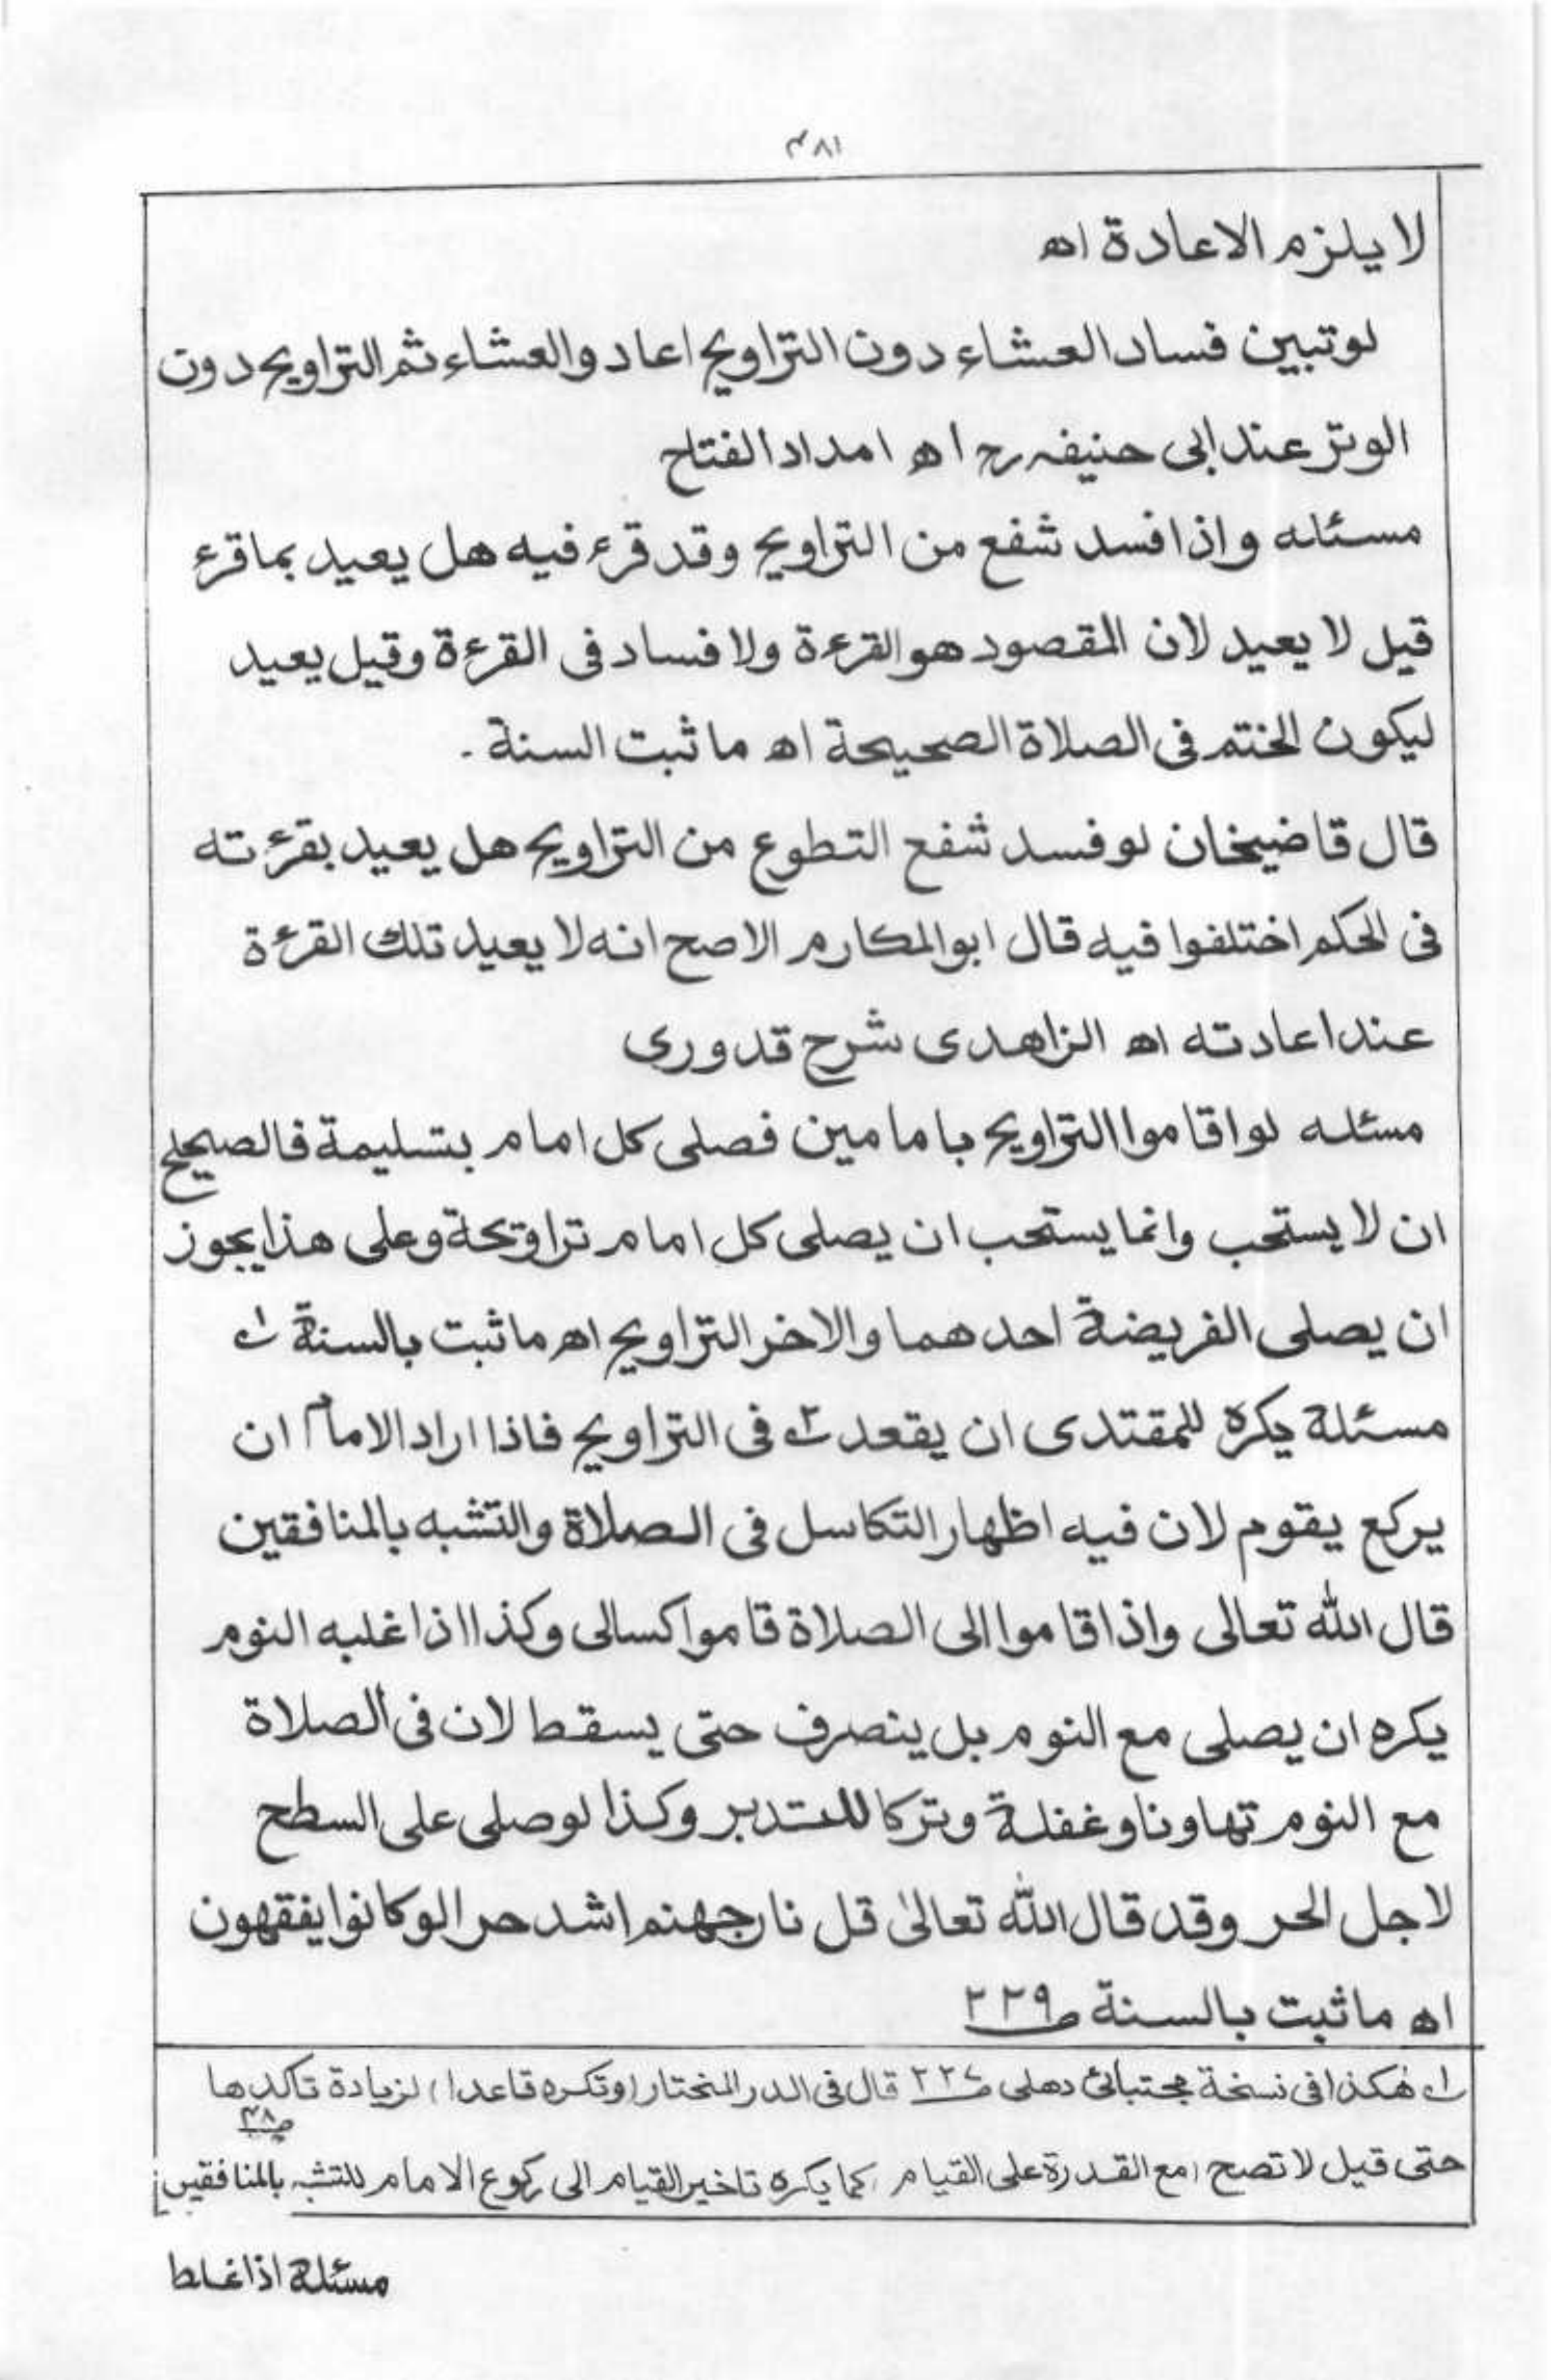 ۴۸۱
لا يلزم الاعادة اه
لو تبين فساد العشاء دون التراويح اعادوا العشاء ثم التراويح دون
الوتر عند ابى حنيفه رح اه امداد الفتاح
مسئله واذا فسد شفع من التراويح وقد قرء فيه هل يعيد بما قرء
قيل لا يعيد لان المقصود هو القرءة ولا فساد فى القرءة وقيل يعيد
ليكون الختم فى الصلاة الصحيحة اه ما ثبت السنة -
قال قاضيخان لو فسد شفع التطوع من التراويح هل يعيد بقرءته
فى الحكم اختلفوا فيه قال ابو المكارم الاصح انه لا يعيد تلك القرءة
عند اعادته اه الزاهدى شرح قدورى
مسئله لو اقاموا التراويح بامامين فصلى كل امام بتسليمة فالصحيح
ان لا يستحب وانما يستحب ان يصلى كل امام تراويحة وعلى هذا يجوز
ان يصلى الفريضة احدهما والاخر التراويح اه ما ثبت بالسنة ۱؎
مسئلة يكره للمقتدى ان يقعد ۲؎ فى التراويح فاذا اراد الامام ان
يركع يقوم لان فيه اظهار التكاسل فى الصلاة والتشبه بالمنافقين
قال الله تعالى واذا قاموا الى الصلاة قاموا كسالى وكذا اذا غلبه النوم
يكره ان يصلى مع النوم بل ينصرف حتى يسقط لان فى الصلاة
مع النوم تهاونا وغفلة وتركا للتدبر وكذا لو صلى على السطح
لاجل الحر وقد قال الله تعالىٰ قل نار جهنم اشد حرا لو كانوا يفقهون
اه ما ثبت بالسنة ص ۲۲۹
۱؎ هٰكذا فى نسخة مجتبائى دهلى ص ۲۲۷ قال فى الدر المختار (وتكره قاعدا) لزيادة تاكدها
حتى قيل لا تصح (مع القدرة على القيام) كما يكره تاخير القيام الى ركوع الامام للتشبه بالمنافقين
مسئلة اذا غلط